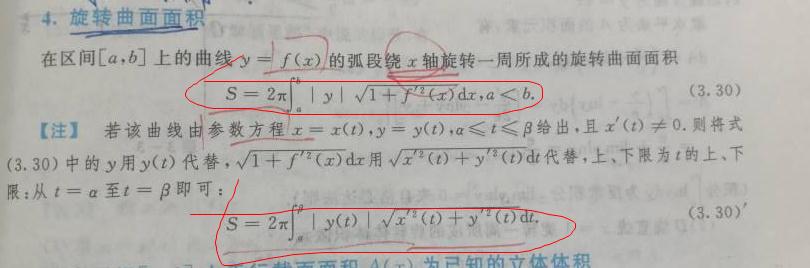 4. 旋转曲面面积
在区间[a,b]上的曲线 y = f(x) 的弧段绕 x 轴旋转一周所成的旋转曲面面积
S = 2π∫ₐᵇ | y | √(1 + f′²(x)) dx, a < b. (3.30)
【注】 若该曲线由参数方程 x = x(t), y = y(t), α ≤ t ≤ β 给出, 且 x′(t) ≠ 0. 则将式
(3.30) 中的 y 用 y(t) 代替, √(1 + f′²(x)) dx 用 √(x′²(t) + y′²(t)) dt 代替, 上、下限为 t 的上、下
限: 从 t = α 至 t = β 即可:
S = 2π∫_α^β | y(t) | √(x′²(t) + y′²(t)) dt. (3.30)′
A(x) 为已知的立体体积